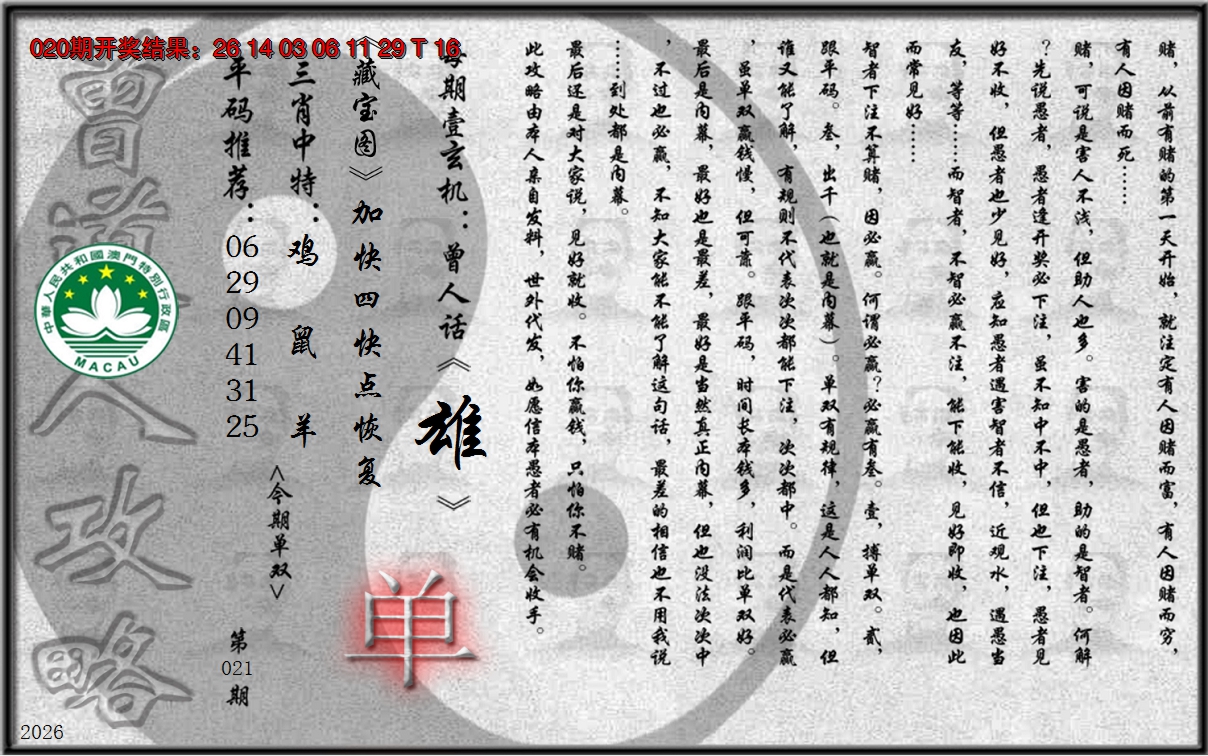 020期开奖结果：26 14 03 06 11 29 T 16
赌，从前有赌的第一天开始，就注定有人因赌而富，有人因赌而穷，
有人因赌而死……
赌，可说是害人不浅，但助人也多。害的是愚者，助的是智者。何解
？先说愚者，愚者逢开奖必下注，虽不知中不中，但也下注，愚者见
好不收，但愚者也少见好，应知愚者遇害智者不信，近观水，遇愚当
友，等等……而智者，不智必赢不注，能下能收，见好即收，也因此
而常见好……
智者下注不算赌，因必赢。何谓必赢？必赢有叁。壹，搏单双。贰，
跟平码。叁，出千（也就是内幕）。单双有规律，这是人人都知，但
谁又能了解，有规则不代表次次都能下注，次次都中。而是代表必赢
，虽单双赢钱慢，但可靠。跟平码，时间长本钱多，利润比单双好。
最后是内幕，最好也是最差，最好是当然真正内幕，但也没法次次中
，不过也必赢，不知大家能不能了解这句话，最差的相信也不用我说
……到处都是内幕。
最后还是对大家说，见好就收。不怕你赢钱，只怕你不赌。
此攻略由本人亲自发料，世外代发，如愿信本愚者必有机会收手。
每期壹玄机：曾人话《雄》
《藏宝图》加快四快点恢复
单
三肖中特：鸡 鼠 羊
<今期单双>
平码推荐：06 29 09 41 31 25
第021期
曾道人攻略
中華人民共和國澳門特別行政區
MACAU
2026